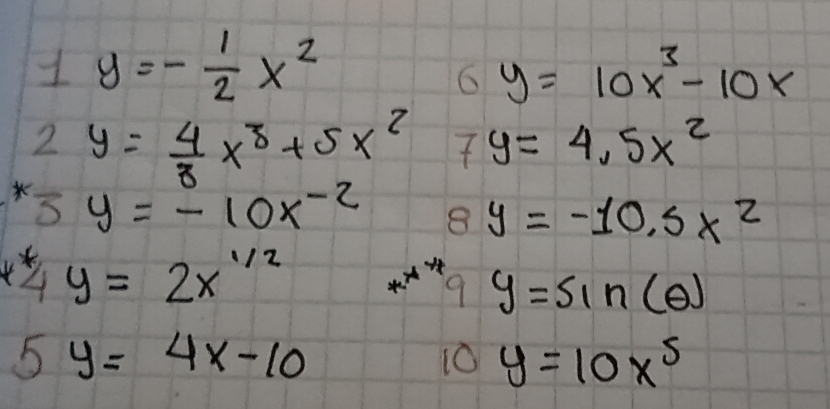 1 y = - 1/2 x²
2 y = 4/3 x³ + 5x²
*3 y = -10x⁻²
**4 y = 2x^1/2
5 y = 4x - 10
6 y = 10x³ - 10x
7 y = 4,5x²
8 y = -10,5x²
***9 y = sin(θ)
10 y = 10x⁵